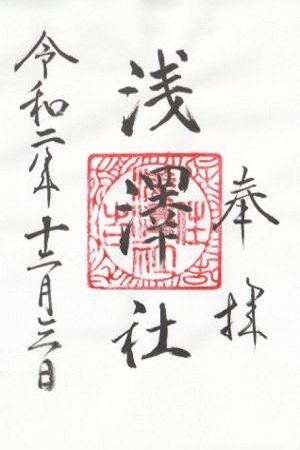 奉拝
浅澤社
令和二年十二月三日